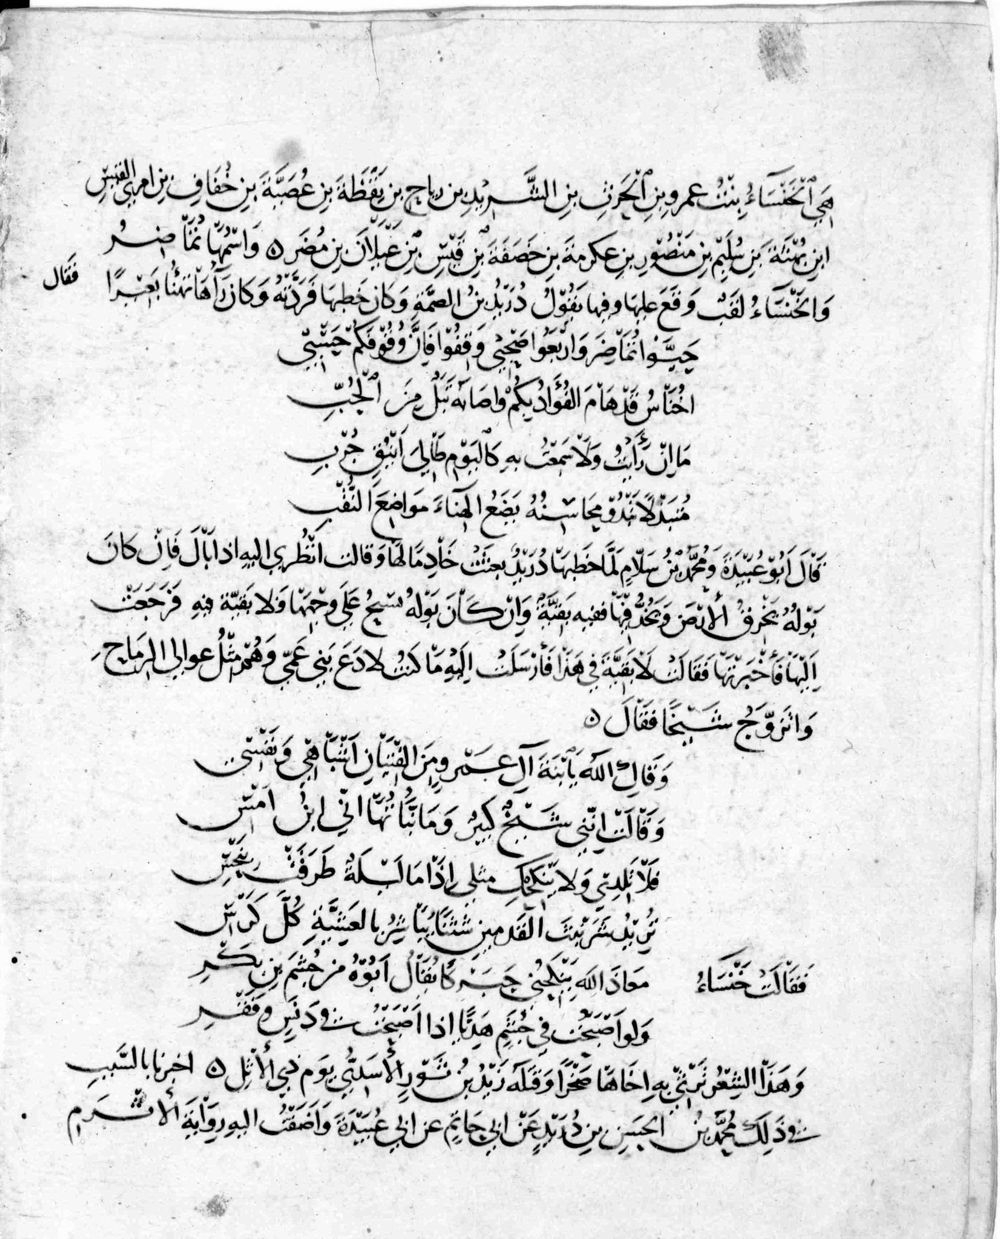 هي الخنساء بنت عمرو بن الحرث بن الشريد بن رياح بن يقظة بن عصية بن خفاف بن امرئ القيس
ابن بهثة بن سليم بن منصور بن عكرمة بن خصفة بن قيس بن عيلان بن مضر ۝ واسمها تماضر
والخنساء لقب وقع عليها وفيها يقول دريد بن الصمة وكان خطبها فردته وكان رآها تهنأ بعيرا فقال
حيوا تماضر واربعوا صحبي وقفوا فإن وقوفكم حسبي
اخناس قد هام الفؤاد بكم واصابه تبل من الحب
ما إن رأيت ولا سمعت به كاليوم طالي اينق جرب
متبذلا تبدو محاسنه يضع الهناء مواضع النقب
قال ابو عبيدة ومحمد بن سلام لما خطبها دريد بعثت خادما لها وقالت انظري اليه اذا بال فإن كان
بوله يخرق الأرض ويخد فيها ففيه بقية وان كان بوله يسيح على وجهها ولا بقية فيه فرجعت
اليها فأخبرتها فقالت لا بقية في هذا فأرسلت اليه ما كنت لادع بني عمي وهم مثل عوالي الرماح
واتزوج شيخا فقال ۝
وقاك الله يا ابنة آل عمرو من الفتيان اشباهي ونفسي
وقالت إنني شيخ كبير وما نبأتها اني ابن امس
فلا تلدي ولا ينكحك مثلي إذا ما ليلة طرقت بنحس
تريد شرنبث القدمين شثنا يباشر بالعشية كل كرس
فقالت خنساء معاذ الله ينكحني حبركا يقال ابوه من جشم بن بكر
ولو اصبحت في جشم هديا اذا اصبحت في دنس وفقر
وهذا الشعر ترثي به اخاها صخرا وقتله زيد بن ثور الأسدي يوم ذي الأثل ۝ اخبرنا بالسبب
في ذلك محمد بن الحسن بن دريد عن ابي حاتم عن ابي عبيدة واضفت اليه رواية الأثرم